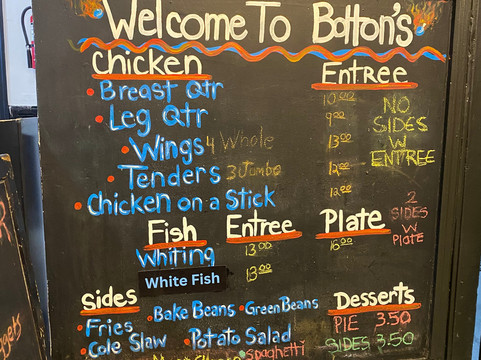 Welcome To Bolton's
Chicken Entree
• Breast Qtr 10.00
• Leg Qtr 9.00
• Wings 4 Whole 13.00
• Tenders 3 Jumbo 12.00
• Chicken on a Stick 12.00
NO
SIDES
W
ENTREE
Fish Entree Plate
Whiting 13.00 16.00
White Fish 13.00
2
SIDES
W
PLATE
Sides Desserts
• Fries • Bake Beans • Green Beans PIE 3.50
• Cole Slaw Potato Salad SIDES 3.50
Spaghetti